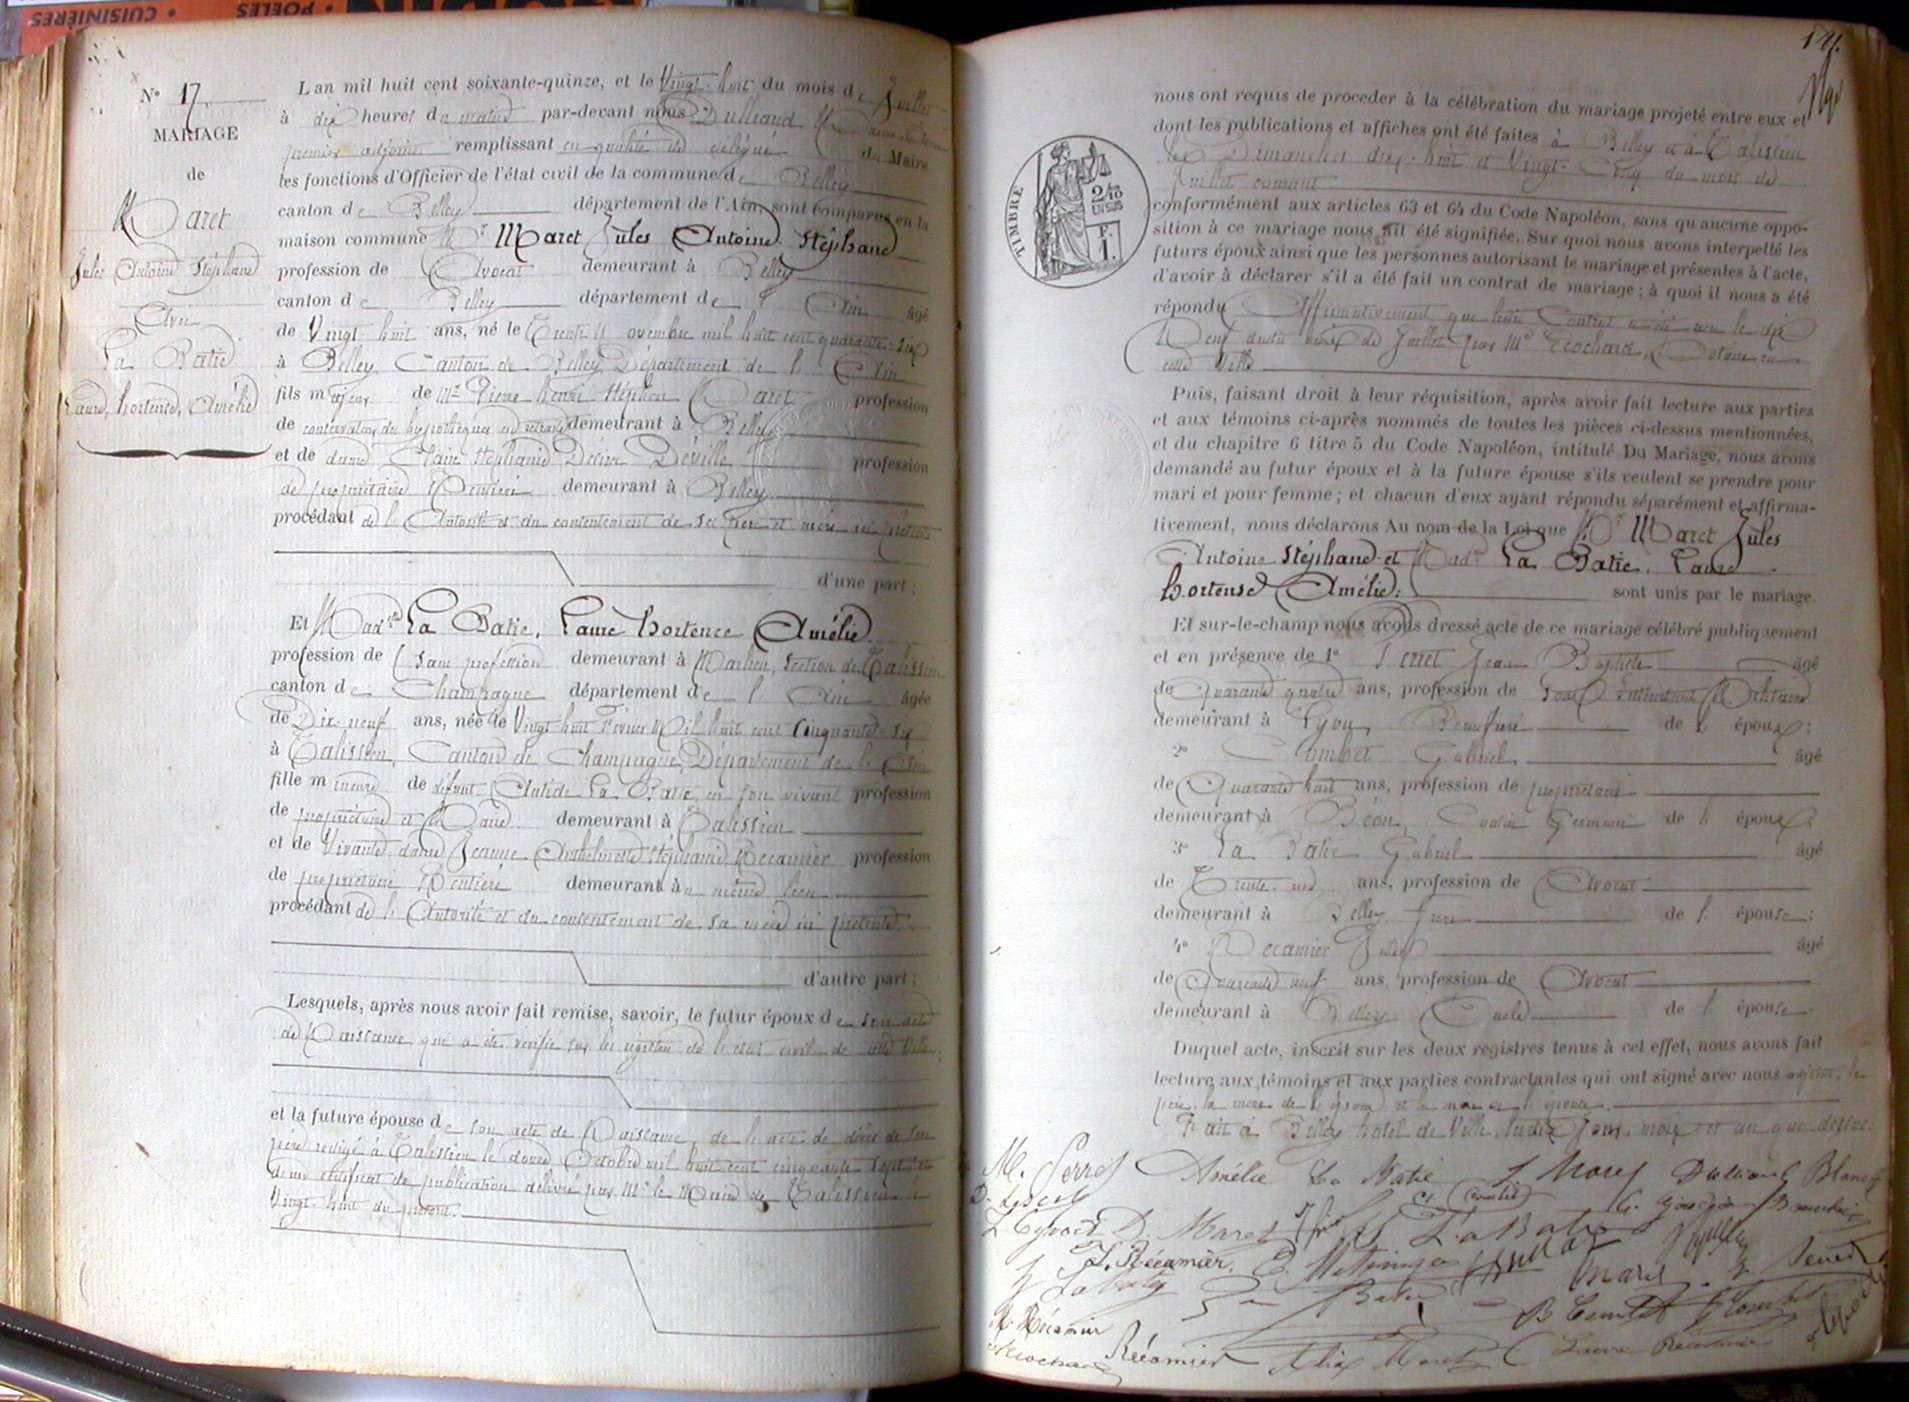 CUISINIÈRES • POELES •
N° 17.
MARIAGE
de
Maret
Jules Antoine Stéphane
Avec
La Batie
Laure, hortense, Amélie
L an mil huit cent soixante-quinze, et le Vingt-huit du mois de Juillet
à dix heures du matin par-devant nous Dulliand
premier adjoint remplissant en qualité de délégué du Maire
les fonctions d'Officier de l'état civil de la commune de Belley
canton de Belley département de l'Ain, sont comparus en la
maison commune Mr Maret Jules Antoine Stéphane
profession de Avocat demeurant à Belley
canton de Belley département de l'Ain âgé
de Vingt huit ans, né le Trente Novembre mil huit cent quarante-six
à Belley Canton de Belley Département de l'Ain
fils majeur de Mr Pierre henri Stéphen Maret profession
de conservateur des hypothèques en retraite demeurant à Belley
et de dame Claire Stéphanie Désirée Déville profession
de propriétaire Rentière demeurant à Belley
procédant de l'Autorité et du consentement de ses père et mère ici présents
d'une part ;
Et Madlle La Batie, Laure hortence Amélie
profession de sans profession demeurant à Marlieu, section de Talissieu
canton de Champagne département de l'Ain âgée
de Dix-neuf ans, née le Vingt huit Février Mil huit cent Cinquante-six
à Talissieu, Canton de Champagne, Département de l'Ain
fille mineure de défunt Antide La Batie, en son vivant profession
de propriétaire et Maire demeurant à Talissieu
et de Vivante dame Jeanne Anthelmette Stéphanie Récamier profession
de propriétaire Rentière demeurant au même lieu
procédant de l'Autorité et du consentement de sa mère ici présente.
d'autre part ;
Lesquels, après nous avoir fait remise, savoir, le futur époux de son acte
de Naissance, qui a été vérifié sur les registres de l'état civil de cette Ville ;
et la future épouse de son acte de Naissance, de l'acte de décès de son
père rédigé à Talissieu le douze Octobre mil huit cent cinquante sept et
d'un certificat de publication délivré par Mr le Maire de Talissieu le
Vingt-huit du présent.
nous ont requis de proceder à la célébration du mariage projeté entre eux et
dont les publications et affiches ont été faites à Belley et à Talissieu
les Dimanches dix-huit et Vingt-Cinq du mois de
Juillet courant
TIMBRE
2/10
EN SUS
F.
1.
conformément aux articles 63 et 64 du Code Napoléon, sans qu'aucune oppo-
sition à ce mariage nous ait été signifiée. Sur quoi nous avons interpellé les
futurs époux ainsi que les personnes autorisant le mariage et présentes à l'acte,
d'avoir à déclarer s'il a été fait un contrat de mariage ; à quoi il nous a été
répondu Affirmativement que leur Contrat a été reçu le dix
Neuf dudit mois de Juillet par Me Ecochard, Notaire en
cette Ville
Puis, faisant droit à leur réquisition, après avoir fait lecture aux parties
et aux témoins ci-après nommés de toutes les pièces ci-dessus mentionnées,
et du chapitre 6 titre 5 du Code Napoléon, intitulé Du Mariage, nous avons
demandé au futur époux et à la future épouse s'ils veulent se prendre pour
mari et pour femme ; et chacun d'eux ayant répondu séparément et affirma-
tivement, nous déclarons Au nom de la Loi que Mr Maret Jules
Antoine Stéphane et Madlle La Batie, Laure
hortense Amélie, sont unis par le mariage.
Et sur-le-champ nous avons dressé acte de ce mariage célébré publiquement
et en présence de 1° Perret Jean Baptiste âgé
de Quarante quatre ans, profession de Sous Intendant Militaire
demeurant à Lyon Beaufrère de l'époux ;
2° Combet Gabriel âgé
de Quarante huit ans, profession de propriétaire
demeurant à Béon, Cousin Germain de l'époux
3° La Batie Gabriel âgé
de Trente un ans, profession de Avocat
demeurant à Belley frère de l'épouse ;
4° Récamier Jules âgé
de Quarante neuf ans, profession de Avocat
demeurant à Belley Oncle de l'épouse.
Duquel acte, inscrit sur les deux registres tenus à cet effet, nous avons fait
lecture aux témoins et aux parties contractantes qui ont signé avec nous adjoint, le
père, la mère de l'époux et la mère de l'épouse.
Fait à Belley hôtel de Ville, lesdits Jour, mois et an que dessus.
M. Perret Amélie La Batie J. Maret Dulliand
D. Maret La Batie
J. Récamier
La Batie
Maret
M. Récamier
Récamier Alix Maret Laure Récamier